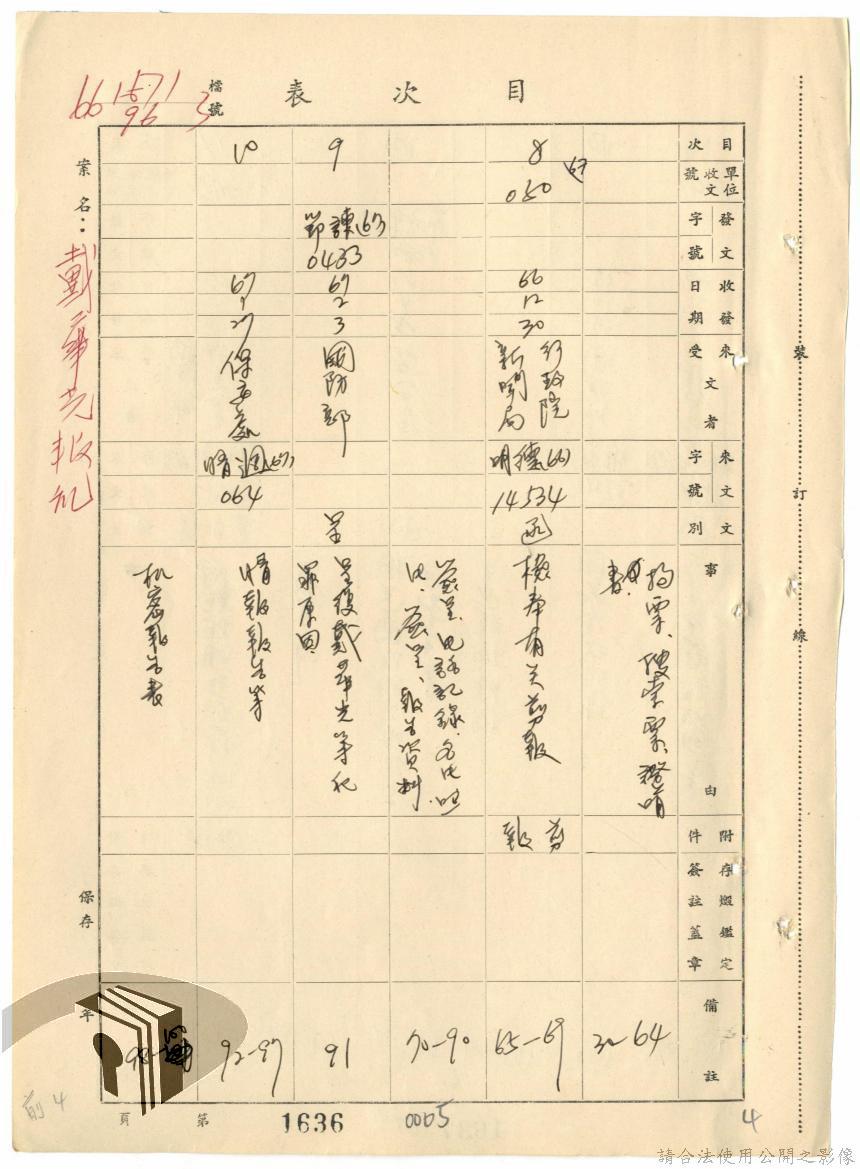 目次表
檔號
66 1571
96 3
案名：戴華光叛亂
目次
單位收文號
發文字號
收發日期
來文者
受文者
來文字號
文別
事由
附件
存燬鑑定
簽註蓋章
備註
拘票、搜索票、證明書
30-64
8
67
050
66
12
30
行政院
新聞局
明德(66)
14534
函
檢奉有关剪報
剪報
65-69
簽呈、
報告資料
70-90
9
諫(67)
0433
67
2
3
國防部
呈
呈復戴華光等犯
罪原因
91
10
67
1
27
保安處
情週(67)
064
情報報告等
92-97
机密報告表
98-
裝
訂
線
保存
年
第
頁
1636
0005
4
前4
請合法使用公開之影像